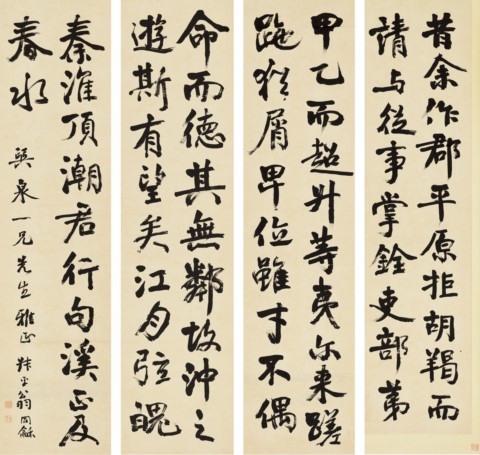 昔余作郡平原拒胡羯而
請与從事掌銓吏部第
甲乙而超升等夷尔来蹉
跎猶屑卑位雖才不偶
命而德其無鄰故沖之
遊斯有望矣江月弦魄
秦淮頂潮君行句溪正及
春水
泉一兄先生雅正 叔平翁同龢